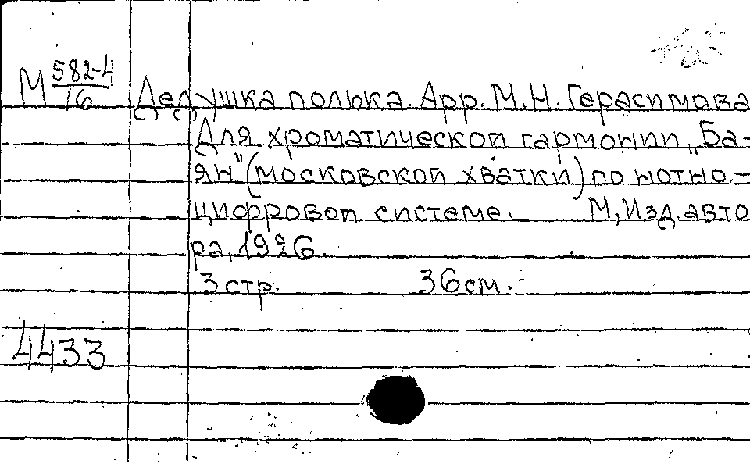 М 582-4/16 Дедушка полька. Арр. М.Н. Герасимова
Для хроматической гармонии „Ба-
ян" (московской хватки) по нотно-
цифровой системе. М, Изд. авто
ра, 1926
3 стр. 36 см.
4433